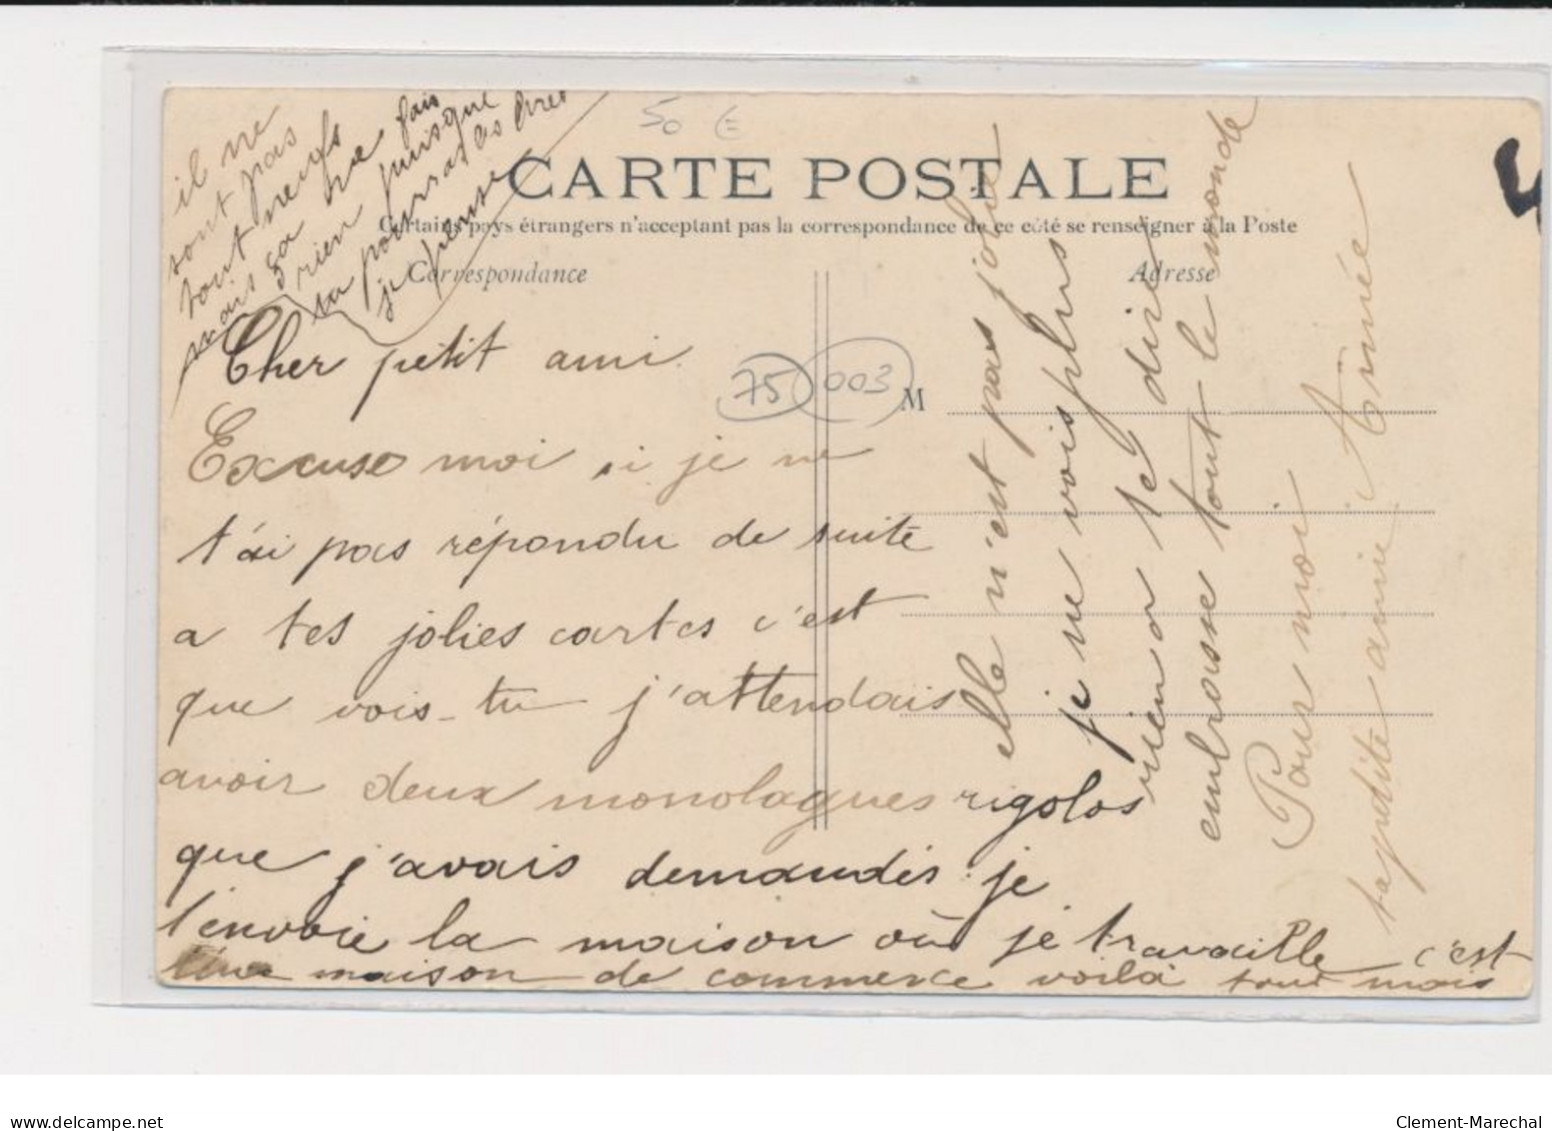 il ne
sont pas
tout neufs
mais ça ne fais
rien puisque
tu pourras les lires
je pense
50 €
CARTE POSTALE
Certains pays étrangers n'acceptant pas la correspondance de ce côté se renseigner à la Poste
Correspondance
Adresse
75 003
M
Cher petit ami
Excuse moi si je ne
t'ai pas répondu de suite
a tes jolies cartes c'est
que vois-tu j'attendais
avoir deux monolagues rigolos
que j'avais demandés je
t'envoie la maison où je travaille c'est
une maison de commerce voilà tout mais
elle n'est pas jolie
je ne vois plus
rien a te dire
embrasse tout le monde
Pour moi
ta petite amie Aimée
Clement-Marechal
www.delcampe.net